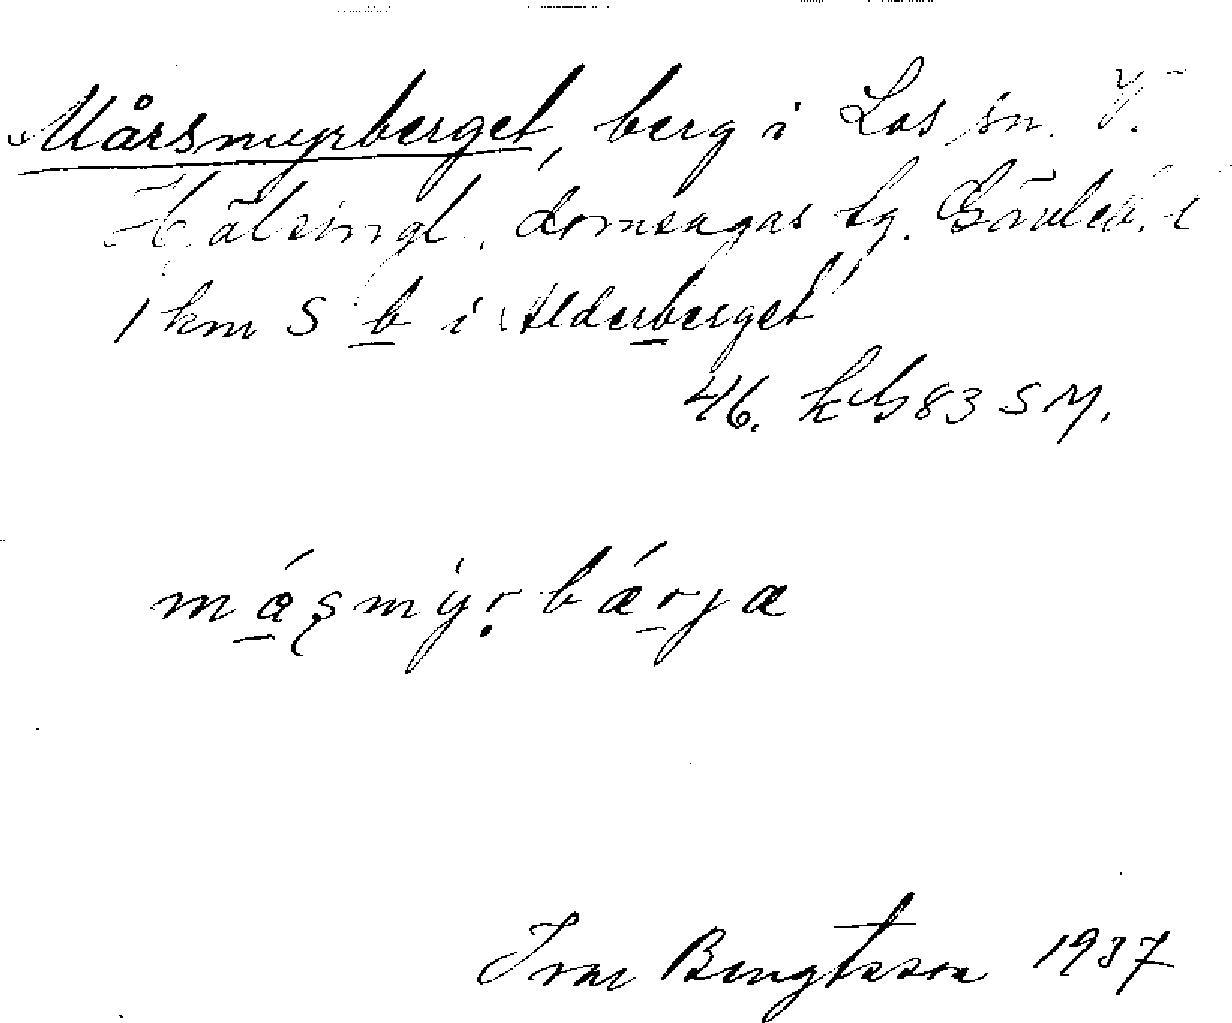 Mårsmyrberget, berg i Los sn. V.
Hälsingl. domsagas tg. Gävleb. l
1 km S b i Alderberget
46. kbl 83 SV.
mǻʂmýr̥bǽrja
Ivar Bengtsson 1937